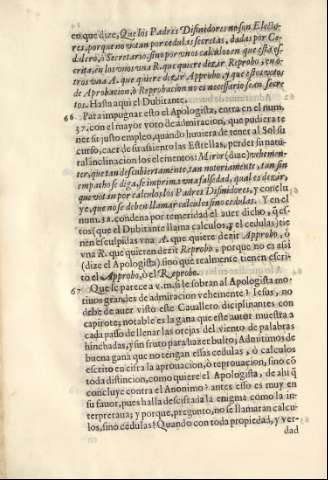 en que dize, Que los Padres Difinidores no son Electo-
res, porque no votan por cedulas secretas, dadas por Ce-
dulero, ò Secretario; sino por vnos calculos en que està es-
crita, en los vnos vna R. que quiere dezir Reprobo, en o-
tros vna A. que quiere dezir Approbo, y que estos votos
de Aprobacion, ò Reprobacion no es necessario sean secre-
tos. Hasta aqui el Dubitante.
66 Para impugnar esto el Apologista, entra en el num.
37. con el mayor voto de admiracion, que pudiera te
ner su justo empleo, quando huuiera de tener al Sol su
curso, caer de su assiento las Estrellas, perder su natu-
ral inclinacion los elementos: Miror (dize) vehemen-
ter, que tan descubiertamente, tan notoriamente, tan sin
empacho se diga, se imprima vna falsedad, qual es dezir,
que votan por calculos los Padres Difinidores, y conclu
ye, que no se deben llamar calculos sino cedulas. Y en el
num. 38. condena por temeridad el auer dicho, q̃ es-
tos (que el Dubitante llama calculos, y el cedulas) tie
nen esculpidas vna A. que quiere dezir Approbo, ò
vna R. que quieren dezir Reprobo, porque no es assi
(dize el Apologista) sino que realmente tienen escri-
to el Approbo, ò el Reprobo.
67 Que le parece a v.m. si le sobran al Apologista mo-
tiuos grandes de admiracion vehemente? Iesus, no
debe de auer visto este Cauallero diciplinantes con
capirote; notable es la gana que este autor muestra a
cada passo de llenar las orejas del viento de palabras
hinchadas, y sin fruto para hazer bulto; Admitimos de
buena gana que no tengan essas cedulas, ò calculos
escrito en cifra la aprouacion, ò reprouacion, sino cõ
toda distincion, como quiere el Apologista, de ahi q̃
concluye contra el Anonimo? antes esso es muy en
su fauor, pues halla descifrada la enigma como la in-
terpretaua; y porque, pregunto, no se llamaran calcu-
los, sino cedulas? Quando con toda propiedad, y ver-
dad